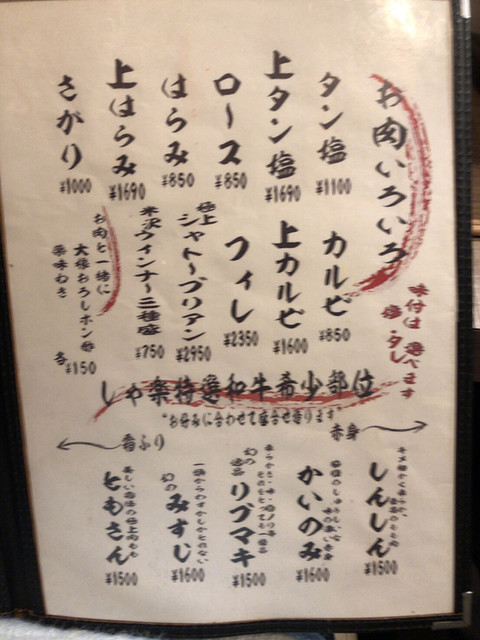 お肉いろいろ
味付は 選べます
塩・タレ
タン塩
¥1100
上タン塩
¥1690
ロース
¥850
はらみ
¥850
上はらみ
¥1690
さがり
¥1000
カルビ
¥850
上カルビ
¥1600
フィレ
¥2350
極上
シャトーブリアン
¥2950
米沢ウインナー三種盛
¥750
お肉と一緒に
大根おろしポン酢
薬味わさ
各¥150
しゃ楽特選和牛希少部位
"お好みに合わせて盛合せ有ります"
赤身
霜ふり
しんしん
¥1500
かいのみ
¥1600
幻の
リブマキ
¥1500
一頭からわずかしかとれない
幻の
みすじ
¥1600
ともさん
¥1500